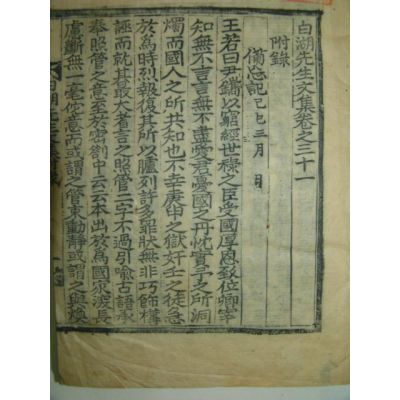 白湖先生文集卷之三十一
附錄
備忘記 己巳三月 日
王若曰尹鑴以窮經世祿之臣受國厚恩致位卿宰
知無不言言無不盡愛君憂國之丹忱實予之所洞
燭而國人之所共知也不幸庚申之獄奸壬之徒急
於爲時烈報復其所以臚列許多罪狀無非巧飾構
誣而就其最大者言之照管二字不過引喩古語承
奉照管之意至於密劄中云云本出於爲國家深長
慮斷無一毫他意而或謂之管束動靜或謂之與煥
白湖先生文集